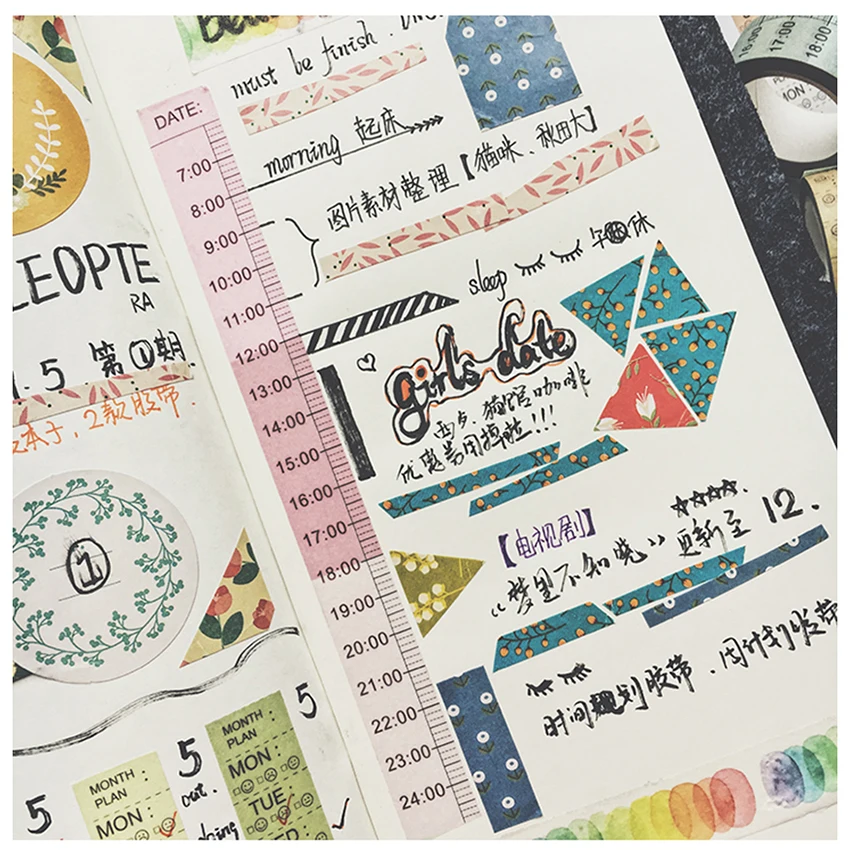 must be finish.
DATE:
morning 起床
7:00
8:00
9:00
10:00
11:00
12:00
13:00
14:00
15:00
16:00
17:00
18:00
19:00
20:00
21:00
22:00
23:00
24:00
图片素材整理【猫咪、秋田犬】
sleep 午休
girl's date
猫馆咖啡
优惠券用掉啦!!!
【电视剧】
《梦里不知晓》更新至 12.
时间规划胶带.周计划胶带
LEOPTE
RA
1.5 第①期
本子,2款胶带.
1
5
5
5
out.
MONTH
PLAN
MON:
MONTH
PLAN
MON:
TUE
17:00
18:00
MON: